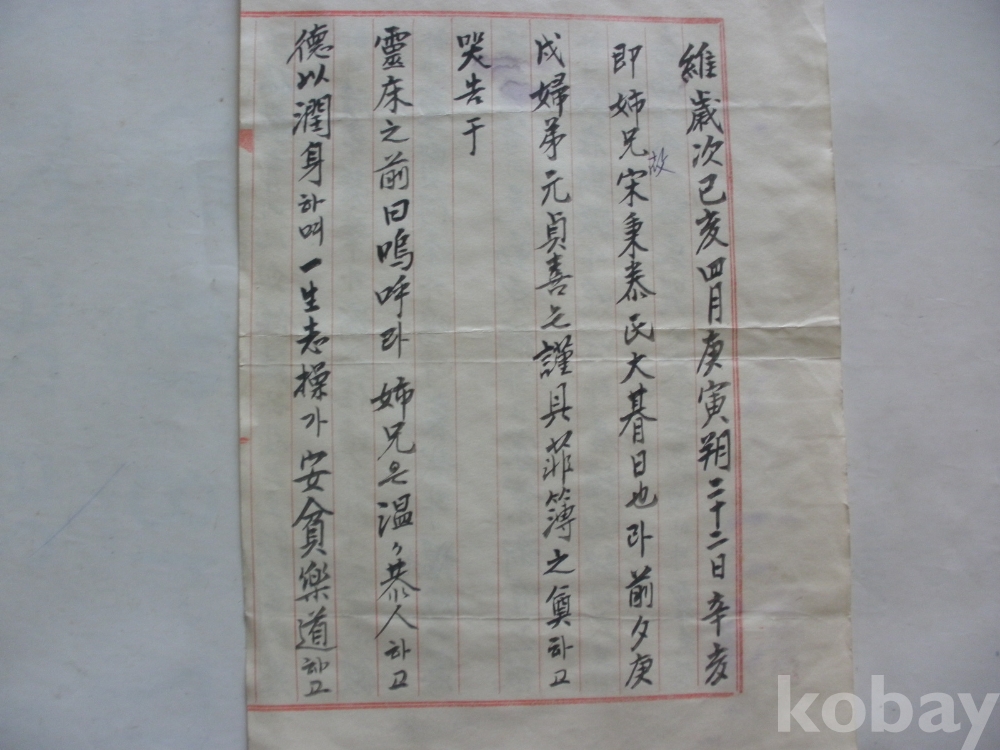 維歲次己亥四月庚寅朔二十二日辛亥
即姉兄故宋秉泰氏大朞日也라前夕庚
戌婦弟元貞喜는謹具菲簿之奠하고
哭告于
靈床之前曰嗚呼라 姉兄은温々恭人하고
德以潤身하며一生志操가安貧樂道하고
kobay